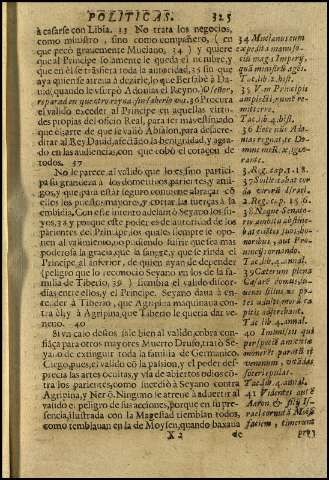 POLITICAS. 325
à casarse con Libia. 33 No trata los negocios,
como ministro, sino como compañero, (en
que pecò gravemente Muciano, 34) y quiere
que al Principe solamente le quede el nombre, y
que en èl se trãsfiera toda la autoridad, 35 sin que
aya quiense atreva à dezirle, lo que Bersabè à Da-
uid, quando le usurpò Adonias el Reyno. O señor,
reparad en que otro reyna, sin saberlo vos. 36 Procura
el valido exceder al Principe en aquellas virtu-
des propias del oficio Real, para ser mas estimado
que èl; arte de que se valiò Absalon, para desacre-
ditar al Rey Dauid, afectãdo la benignidad, y agra-
do en las audiencias, con que robò el coraçon de
todos. 37
No le parece al valido que lo es, sino partici-
pa su grandeza à los domesticos, parientes, y ami-
gos, y que para estar seguro conuiene abraçar cõ
ellos los puestos mayores, y cortar las fuerças à la
embidia. Con este intento adelantò Seyano los su-
yos, 38 y porque este poder es de autoridad de los
parientes del Principe, los quales siempre se opo-
nen al valimiento, no pudiendo sufrir que sea mas
poderosa la gracia, que la sangre, y que se rinda el
Principe al inferior, de quien ayan de depender
(peligro que lo reconociò Seyano en los de la fa-
milia de Tiberio, 39) siembra el valido discor-
dias entre ellos, y el Principe. Seyano daua à en-
tender à Tiberio, que Agripina maquinaua con-
tra èl, y à Agripina, que Tiberio le queria dar ve-
neno. 40
Si vn caso destos sale bien al valido, cobra con-
fiãça para otros mayores. Muerto Druso, tratò Se-
yano de extinguir toda la familia de Germanico.
Ciego, pues, el valido cõ la passion, y el poder des-
precia las artes ocultas, y vsa de abiertos odios cõ-
tra los parientes, como sucediò à Seyano contra
Agripina, y Nerõ. Ninguno se atreue à aduertir al
valido el peligro de sus acciones, porque en su pre-
sencia, ilustrada con la Magestad tiemblan todos,
como temblauan en la de Moysen, quando baxaua
X 2 de
34 Mucianus cum
expedita manu so-
cium mag. Imperÿ,
quã ministrũ agẽs.
Tac. lib. 2. hist.
35 Vim Principis
amplecti, nomẽ re-
mittere.
Tac. lib. 4. hist.
36 Ecce nũc Ado-
nias regnat, te Do-
mine mi Rex, igno-
rante.
3. Reg. cap. 1. 18.
37 Sollicitabat cor-
da virorũ Israel.
2. Reg. c. p. 15. 6.
38 Neque Senato-
rio ambitu abstine-
bat clientes suos, ho-
noribus, aut Pro-
uincÿs ornando.
Tac. lib. 4. annal.
39 Cæterum plena
Cæsarũ domus, iu-
uenis filius, nepo-
tes adulti, morã cu-
pitis adferebant.
Tac. lib. 4. annal.
40 Immissis qui
per speciẽ amicitiæ
monerẽt paratũ ei
venenum, vitãdas
soceri epulas.
Tac. lib. 4. annal.
41 Videntes autẽ
Aaron, & filÿ Is-
rael cornutã Moysi
faciem, timuerunt
prope